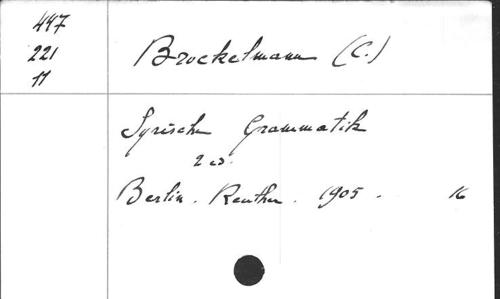 447
221
11
Brockelmann (C.)
Syrische Grammatik
2 ed.
Berlin. Reuther. 1905. 16